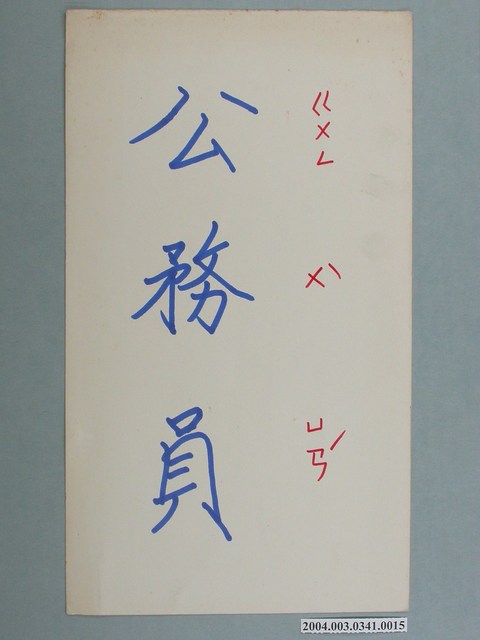 公務員
ㄍㄨㄥ
ㄨˋ
ㄩㄢˊ
2004.003.0341.0015